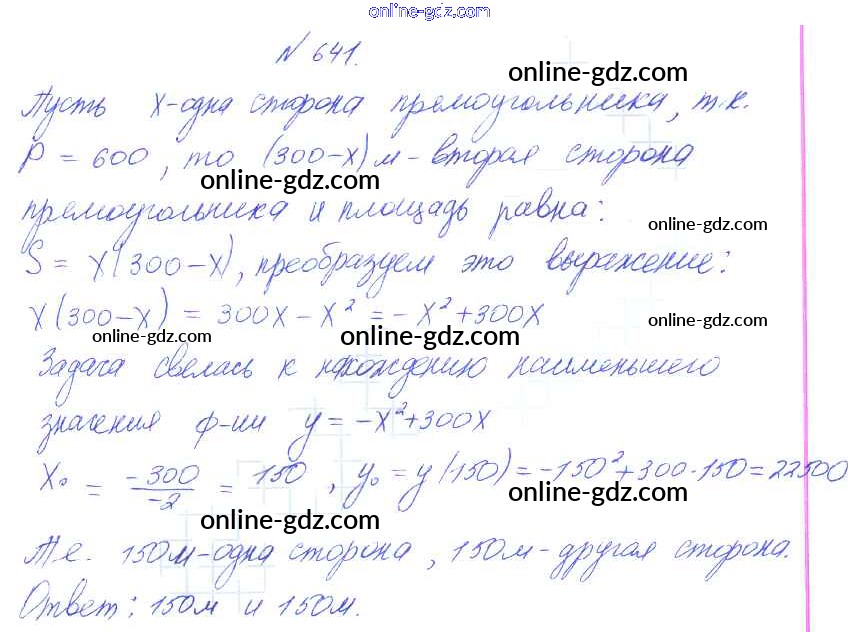 online-gdz.com
N 641.
online-gdz.com
Пусть x-одна сторона прямоугольника, т.к.
P = 600, то (300-x) м - вторая сторона
online-gdz.com
прямоугольника и площадь равна:
online-gdz.com
S = x(300-x), преобразуем это выражение:
online-gdz.com
x(300-x) = 300x - x² = - x² + 300x
online-gdz.com
online-gdz.com
online-gdz.com
Задача свелась к нахождению наименьшего
значения ф-ии y = -x² + 300x
x₀ = -300/-2 = 150, y₀ = y(150) = -150² + 300·150 = 22500
online-gdz.com
online-gdz.com
Т.е. 150м-одна сторона, 150м-другая сторона.
Ответ: 150м и 150м.